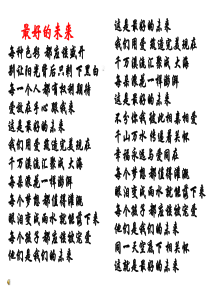 最好的未来
每种色彩 都应该盛开
别让阳光背后只剩下黑白
每一个人 都有权利期待
爱放在手心 跟我来
这是最好的未来
我们用爱 筑造完美现在
千万溪流汇聚成 大海
每朵浪花一样澎湃
每个梦想 都值得灌溉
眼泪变成雨水就能落下来
每个孩子 都应该被宠爱
他们是我们的未来
这是最好的未来
我们用爱 筑造完美现在
千万溪流汇聚成 大海
每朵浪花一样澎湃
这是最好的未来
不分你我彼此相亲相爱
千山万水 传递着关怀
幸福永远 与爱同在
每个梦想 都值得灌溉
眼泪变成雨水就能落下来
每个孩子 都应该被宠爱
他们是我们的未来
同一天空底下 相关怀
这就是最好的未来